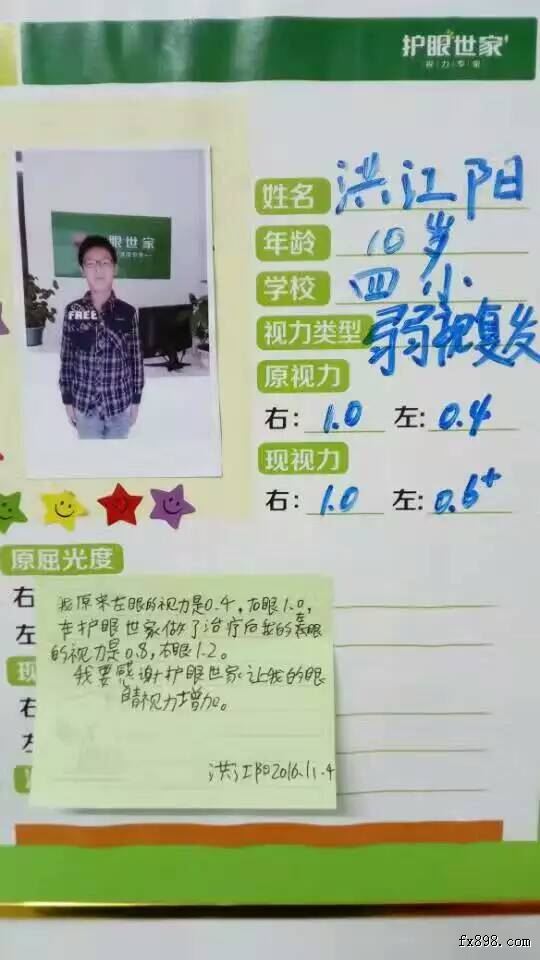 护眼世家
视力专家
眼世家
FREE
姓名 洪江阳
年龄 10岁
学校 四小
视力类型 弱视复发
原视力
右: 1.0 左: 0.4
现视力
右: 1.0 左: 0.6+
原屈光度
右
左
现
右
左
我原来左眼的视力是0.4,右眼1.0,
在护眼世家做了治疗后我的左眼
的视力是0.8,右眼1.2。
我要感谢护眼世家让我的眼
睛视力增加。
洪江阳2016.11.4
fx898.com